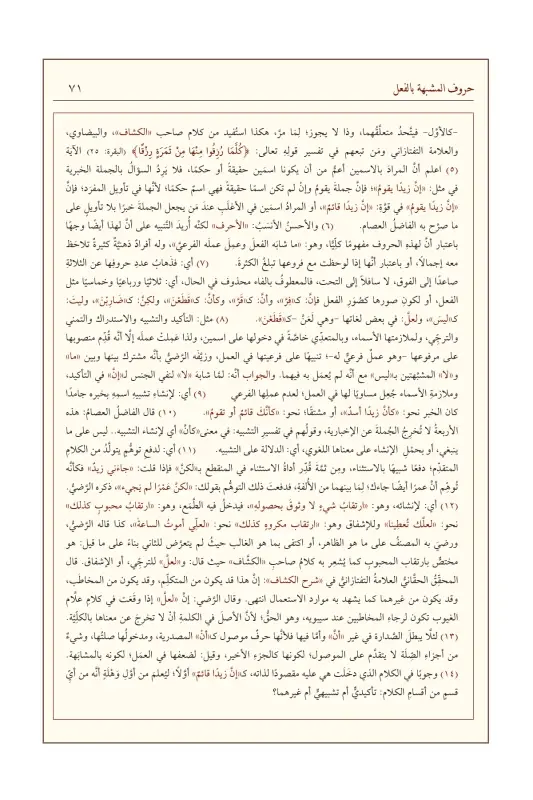 حروف المشبهة بالفعل ٧١
-كالأوَّل- فيتَّحدُ متعلَّقُهما، وذا لا يجوز؛ لِمَا مرَّ، هكذا استُفيد من كلام صاحب «الكشاف»، والبيضاوي،
والعلامة التفتازاني ومَن تبعهم في تفسير قولِهِ تعالى: ﴿كُلَّمَا رُزِقُوا مِنْهَا مِنْ ثَمَرَةٍ رِزْقًا﴾ (البقرة: ٢٥) الآية
(٥) اعلم أنَّ المرادَ بالاسمين أعمُّ من أن يكونا اسمين حقيقةً أو حكمًا، فلا يَرِدُ السؤالُ بالجملة الخبرية
في مثل: «إنَّ زيدًا يقومُ»؛ فإنَّ جملةَ يقومُ وإنْ لم تكن اسمًا حقيقةً فهي اسمٌ حكمًا؛ لأنَّها في تأويل المفرَد؛ فإنَّ
«إنَّ زيدًا يقومُ» في قوَّةِ: «إنَّ زيدًا قائمٌ»، أو المرادُ اسمَين في الأغلَبِ عندَ مَن يجعل الجملةَ خبرًا بلا تأويلٍ على
ما صرَّح به الفاضلُ العصام. (٦) والأحسنُ الأنسَبُ: «الأحرف» لكنَّه أُريدَ التَّنبيه على أنَّ لهذا أيضًا وجهًا
باعتبار أنَّ لهذهِ الحروف مفهومًا كلِّيًّا، وهو: «ما شابَه الفعلَ وعمِلَ عملَه الفرعيَّ»، وله أفرادٌ ذهنيَّةٌ كثيرةٌ تلاحَظ
معه إجمالًا، أو باعتبار أنَّها إذا لوحظت مع فروعها تبلغُ الكثرةَ. (٧) أي: فذَهابُ عددِ حروفِها عن الثلاثةِ
صاعدًا إلى الفوق، لا سافلاً إلى التحت، فالمعطوفُ بالفاء محذوف في الحال، أي: ثلاثيًا ورباعيًا وخماسيًا مثل
الفعل، أو لكونِ صورِها كصُورِ الفعل فإنَّ: كـ«فِرَّ»، وأنَّ: كـ«فَرَّ»، وكأنَّ: كـ«قَطَعْنَ»، ولكِنَّ: كـ«ضَارِبْنَ»، وليتَ:
كـ«ليسَ»، ولعلَّ: في بعض لغاتها -وهي لَعَنَّ -كـ«قَطَعْنَ». (٨) مثل: التأكيد والتشبيه والاستدراك والتمني
والترجّي، وملازمتها الأسماء، وبالمتعدّي خاصَّةً في دخولها على اسمين، ولذا عَمِلتْ عملَه إلَّا أنَّه قُدِّم منصوبها
على مرفوعها -وهو عملٌ فرعيٌّ له-؛ تنبيهًا على فرعيتها في العمل، وزيَّفَه الرَّضيُّ بأنَّه مشترك بينها وبين «ما»
و«لا» المشبَّهتين بـ«ليس» مع أنَّه لم يُعمَل به فيهما. والجواب أنَّه: لمَّا شابَهَ «لا» لنفي الجنس لـ«إنَّ» في التأكيد،
وملازمةِ الأسماء جُعِل مساويًا لها في العمل؛ لعدم عملِها الفرعي (٩) أي: لإنشاءِ تشبيهِ اسمِهِ بخبره جامدًا
كان الخبر نحو: «كأنَّ زيدًا أسدٌ»، أو مشتقًا؛ نحو: «كأنَّكَ قائمٌ أو تقومُ». (١٠) قال الفاضلُ العصامُ: هذه
الأربعةُ لا تُخرِجُ الجُملةَ عن الإخبارية، وقولُهم في تفسير التشبيه: في معنى«كأنَّ» أي لإنشاء التشبيه.. ليس على ما
ينبغي، أو يحمَلِ الإنشاء على معناها اللغوي، أي: الدلالة على التشبيه. (١١) أي: لدفعِ توهُّمٍ يتولَّدُ من الكلامِ
المتقدِّم؛ دفعًا شبيهًا بالاستثناء، ومِن ثمَّة قُدِّر أداةُ الاستثناءِ في المنقطع بـ«لكنَّ» فإذا قلت: «جاءني زيدٌ» فكأنَّه
تُوهِّم أنَّ عمرًا أيضًا جاءك؛ لِمَا بينهما من الأُلفة، فدفعتَ ذلك التوهُّم بقولك: «لكنَّ عَمْرًا لم يَجيء»، ذكره الرَّضيُّ.
(١٢) أي: لإنشائه، وهو: «ارتقابُ شيءٍ لا وثوقَ بحصولهِ»، فيدخلُ فيه الطَّمَع، وهو: «ارتقابُ محبوبٍ كذلك»
نحو: «لعلَّك تُعطينا» وللإشفاق وهو: «ارتقاب مكروهٍ كذلك» نحو: «لعلِّي أموتُ الساعة»، كذا قاله الرَّضيُّ،
ورضيَ به المصنفُ على ما هو الظاهر، أو اكتفى بما هو الغالب حيثُ لم يتعرَّض للثاني بناءً على ما قيل: هو
مختصٌّ بارتقاب المحبوب كما يُشعر به كلامُ صاحب «الكشَّاف» حيث قال: و«لعلَّ» للترجِّي، أو الإشفاق. قال
المحقِّقُ الحقَّانيُّ العلامةُ التفتازانيُّ في «شرح الكشاف»: إنَّ هذا قد يكون من المتكلِّم، وقد يكون من المخاطَب،
وقد يكون من غيرهما كما يشهد به موارد الاستعمال انتهى. وقال الرَّضي: إنَّ «لعلَّ» إذا وقعَت في كلام علَّام
الغيوب تكون لرجاء المخاطبين عند سيبويه، وهو الحقُّ؛ لأنَّ الأصلَ في الكلمةِ أنْ لا تخرجَ عن معناها بالكلِّيَّة.
(١٣) لئلَّا يبطلَ الصَّدارة في غير «أنَّ» وأمَّا فيها فلأنَّها حرفُ موصول كـ«أنْ» المصدرية، ومدخولُها صلتُها، وشيءٌ
من أجزاءِ الصِّلة لا يتقدَّم على الموصول؛ لكونها كالجزءِ الأخير، وقيل: لضعفها في العمَل؛ لكونه بالمشابَهة.
(١٤) وجوبًا في الكلام الذي دخَلَت هي عليه مقصودًا لذاته، كـ«إنَّ زيدًا قائمٌ» أوَّلًا؛ ليُعلمَ من أوَّلِ وَهْلَةٍ أنَّه من أيِّ
قسمٍ من أقسام الكلام: تأكيديٌّ أم تشبيهيٌّ أم غيرهما؟